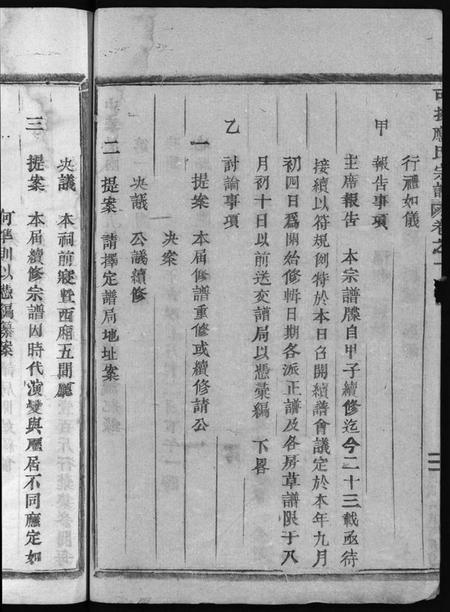 氏宗譜
行禮如儀
甲 報告事項
主席報告 本宗譜牒自甲子續修迄今二十三載亟待
接續以符規例特於本日召開續譜會議定於本年九月
初四日為開始修輯日期各派正譜及各房草譜限于八
月初十日以前送交譜局以憑彙編 下畧
乙 討論事項
一 提案 本屆修譜重修或續修請公
決案
決議 公議續修
二 提案 請擇定譜局地址案
決議 本祠前寢暨西廂五間廳
三 提案 本屆續修宗譜因時代演變與廬居不同應定如
何準則以憑編纂案